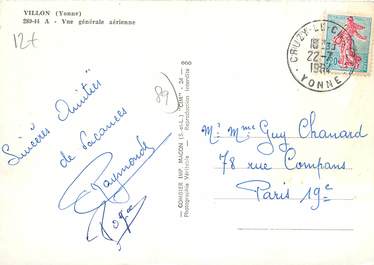 VILLON (Yonne)
289-44 A - Vue générale aérienne
12f
89)
Sincères Amitiés
de Vacances
Raymonde
Roger
660
COMBIER IMP. MACON (S.-et-L.) "CIM"
Photographie Véritable - Reproduction Interdite
CRUZY-LE-C
22-7
YONNE
Mr Mme Guy Chanard
78 rue Compans
Paris 19e